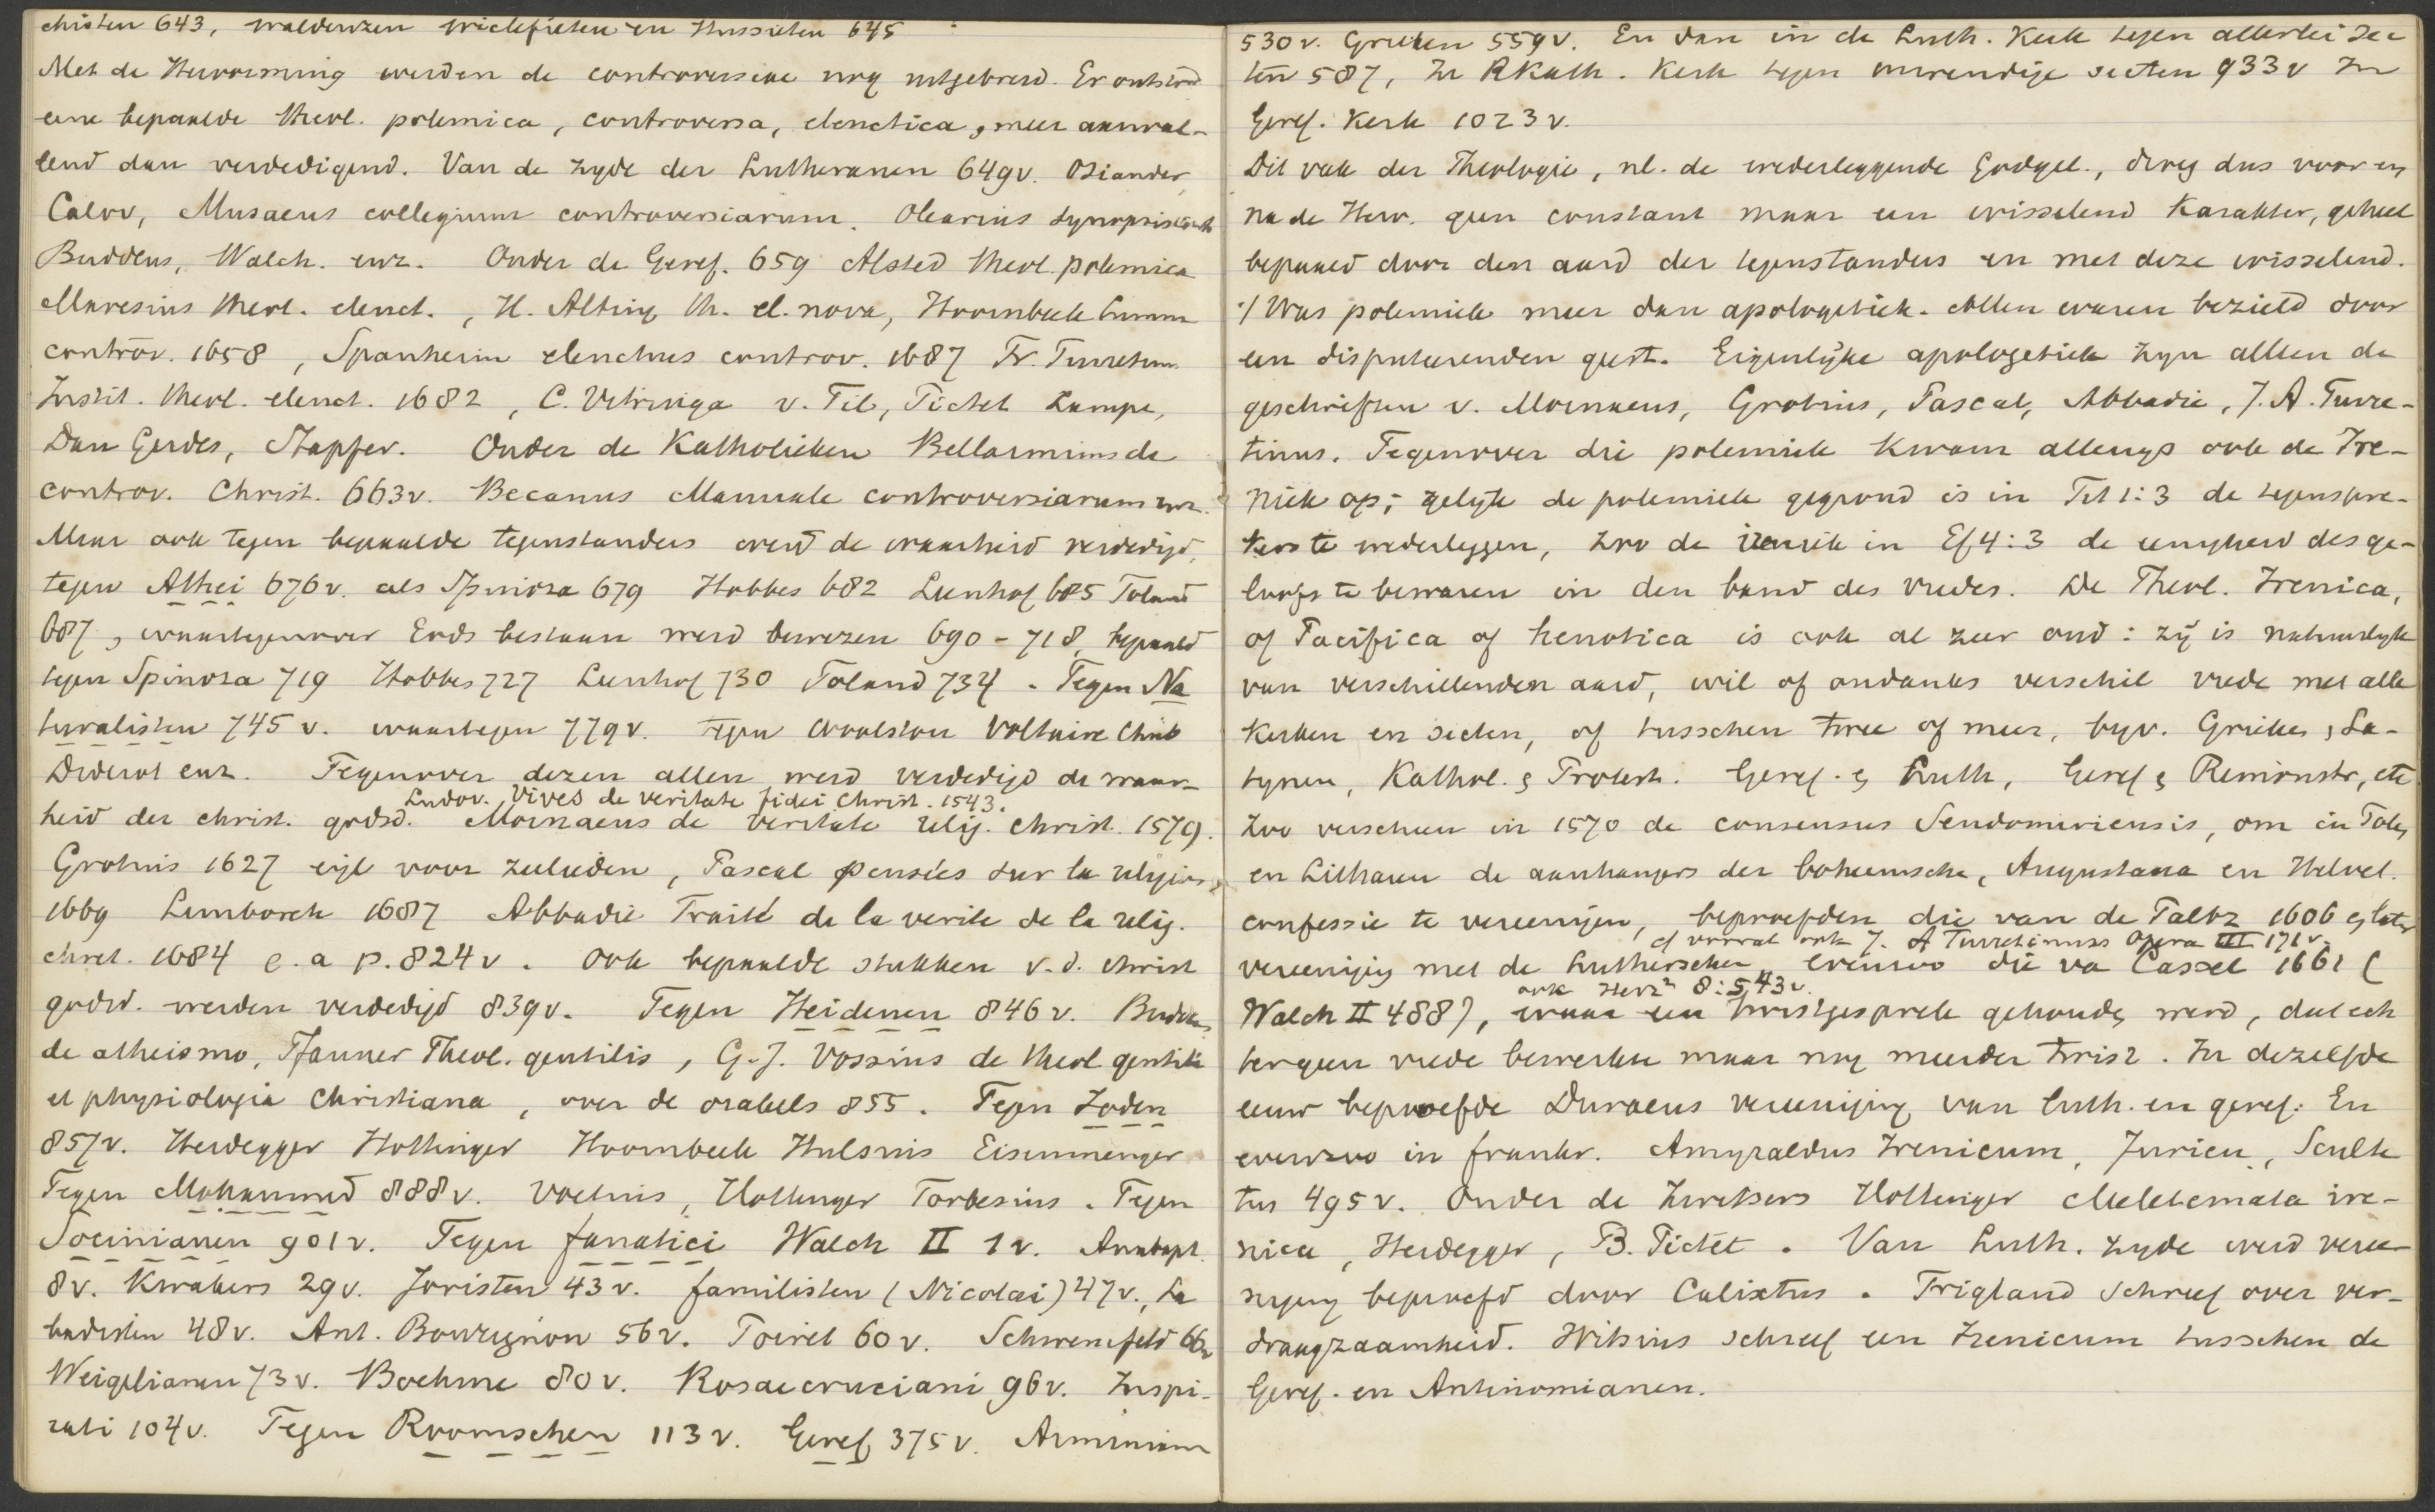 christen 643, waldenzen wiclefieten en Hussieten 645
Met de Hervorming werden de controversiae nog uitgebreid. Er ontstond
eene bepaalde theol. polemica, controversa, elenctica, meer aanval-
lend dan verdedigend. Van de zyde der Lutheranen 649v. Osiander,
Calov, Musaeus collegium controversiarum. Olearius synopsis
Buddeus, Walch. enz. Onder de Geref. 659 Alsted theol. polemica
Maresius theol. elenct., H. Alting th. el. nova, Hoornbeek Summa
controv. 1658, Spanheim elenchus controv. 1687 Fr. Turretin.
Instit. theol. elenct. 1682, C. Vitringa v. Til, Pictet Lampe,
Dan Gerdes, Stapfer. Onder de Katholieken Bellarminus de
controv. Christ. 663v. Becanus Manuale controversiarum enz.
Maar ook tegen bepaalde tegenstanders werd de waarheid verdedigd,
tegen Athei 676v. als Spinoza 679 Hobbes 682 Leenhof 685 Toland
687, waartegenover Gods bestaan werd bewezen 690-718, bepaald
tegen Spinoza 719 Hobbes 727 Leenhof 730 Toland 734. Tegen Na
turalisten 745 v. waartegen 779v. tegen Woolston Voltaire Chubb
Diderot enz. Tegenover dezen allen werd verdedigd de waar-
Ludov. Vives de veritate fidei Christ. 1543.
heid der christ. godsd. Mornaeus de veritate relig. Christ. 1579.
Grotius 1627 eigl voor zeelieden, Pascal pensées sur la religion,
1669 Limborch 1687 Abbadie Traité de la verite de la relig.
chret. 1684 e.a p. 824v. Ook bepaalde stukken v.d. christ
godsd. werden verdedigd 839v. Tegen Heidenen 846v. Buddeus
de atheismo, Pfanner Theol. gentilis, G.J. Vossius de theol gentili
et physiologia Christiana, over de orakels 855. Tegen Joden
857v. Heidegger Hottinger Hoornbeek Hulsius Eisenmenger
Tegen Mohammed 888v. Voetius, Hottinger Forbesius. Tegen
Socinianen 901v. Tegen fanatici Walch II 1v. Anabapt.
8v. Kwakers 29v. Joristen 43v. familisten (Nicolai) 47v., La
badisten 48v. Ant. Bourignon 56v. Poiret 60v. Schwencfeld 66v
Weigelianen 73v. Boehme 80v. Rosaecruciani 96v. Inspi-
rati 104v. Tegen Roomschen 113v. Geref 375v. Arminianen
530v. Grieken 559v. En dan in de Luth. Kerk tegen allerlei sec
ten 587, In RKath. Kerk tegen inwendige secten 933v In
Geref. Kerk 1023v.
Dit vak der Theologie, nl. de wederleggende Godgel., droeg dus voor en
na de Herv. geen constant maar een wisselend karakter, geheel
bepaald door den aard der tegenstanders en met deze wisselend.
't Was polemiek meer dan apologetiek. Allen waren bezield door
een disputeerenden geest. Eigenlyke apologetiek zyn alleen de
geschriften v. Mornaeus, Grotius, Pascal, Abbadie, J.A. Turre-
tinus. Tegenover die polemiek kwam allengs ook de Ire-
niek op; gelyk de polemiek gegrond is in Tit 1:3 de tegenspre-
kers te wederleggen, zoo de ireniek in Ef 4:3 de eenigheid des ge-
loofs te bewaren in den band des vredes. De Theol. Irenica,
of Pacifica of henotica is ook al zeer oud: zij is natuurlyk
van verschillenden aard, wil of ondanks verschil vrede met alle
kerken en secten, of tusschen twee of meer, byv. Grieken, La-
tynen, Kathol. & Protest. Geref. & Luth, Geref & Remonstr, etc
Zoo verscheen in 1570 de consensus Sendomiriensis, om in Polen
en Litthauen de aanhangers der boheemsche, Augustana en Helvet.
confessie te vereenigen, beproefden die van de Paltz 1606 en later
cf vooral ook J. A Turretinus Opera III 171v.
vereeniging met de Luthersche evenzoo die va Cassel 1661 (
ook Herz² 8:543v.
Walch II 488), waar een twistgesprek gehouden werd, dat ech
ter geen vrede bewerkte maar nog meerder twist. In dezelfde
eeuw beproefde Duraeus vereeniging van luth. en geref. En
evenzoo in frankr. Amyraldus Irenicum, Jurieu, Sculte
tus 495v. Onder de Zwitsers Hottinger Meletemata ire-
nica, Heidegger, B. Pictet. Van Luth. zyde werd veree-
niging beproefd door Calixtus. Trigland schreef over ver-
draagzaamheid. Witsius schreef een Irenicum tusschen de
Geref. en Antinomianen.